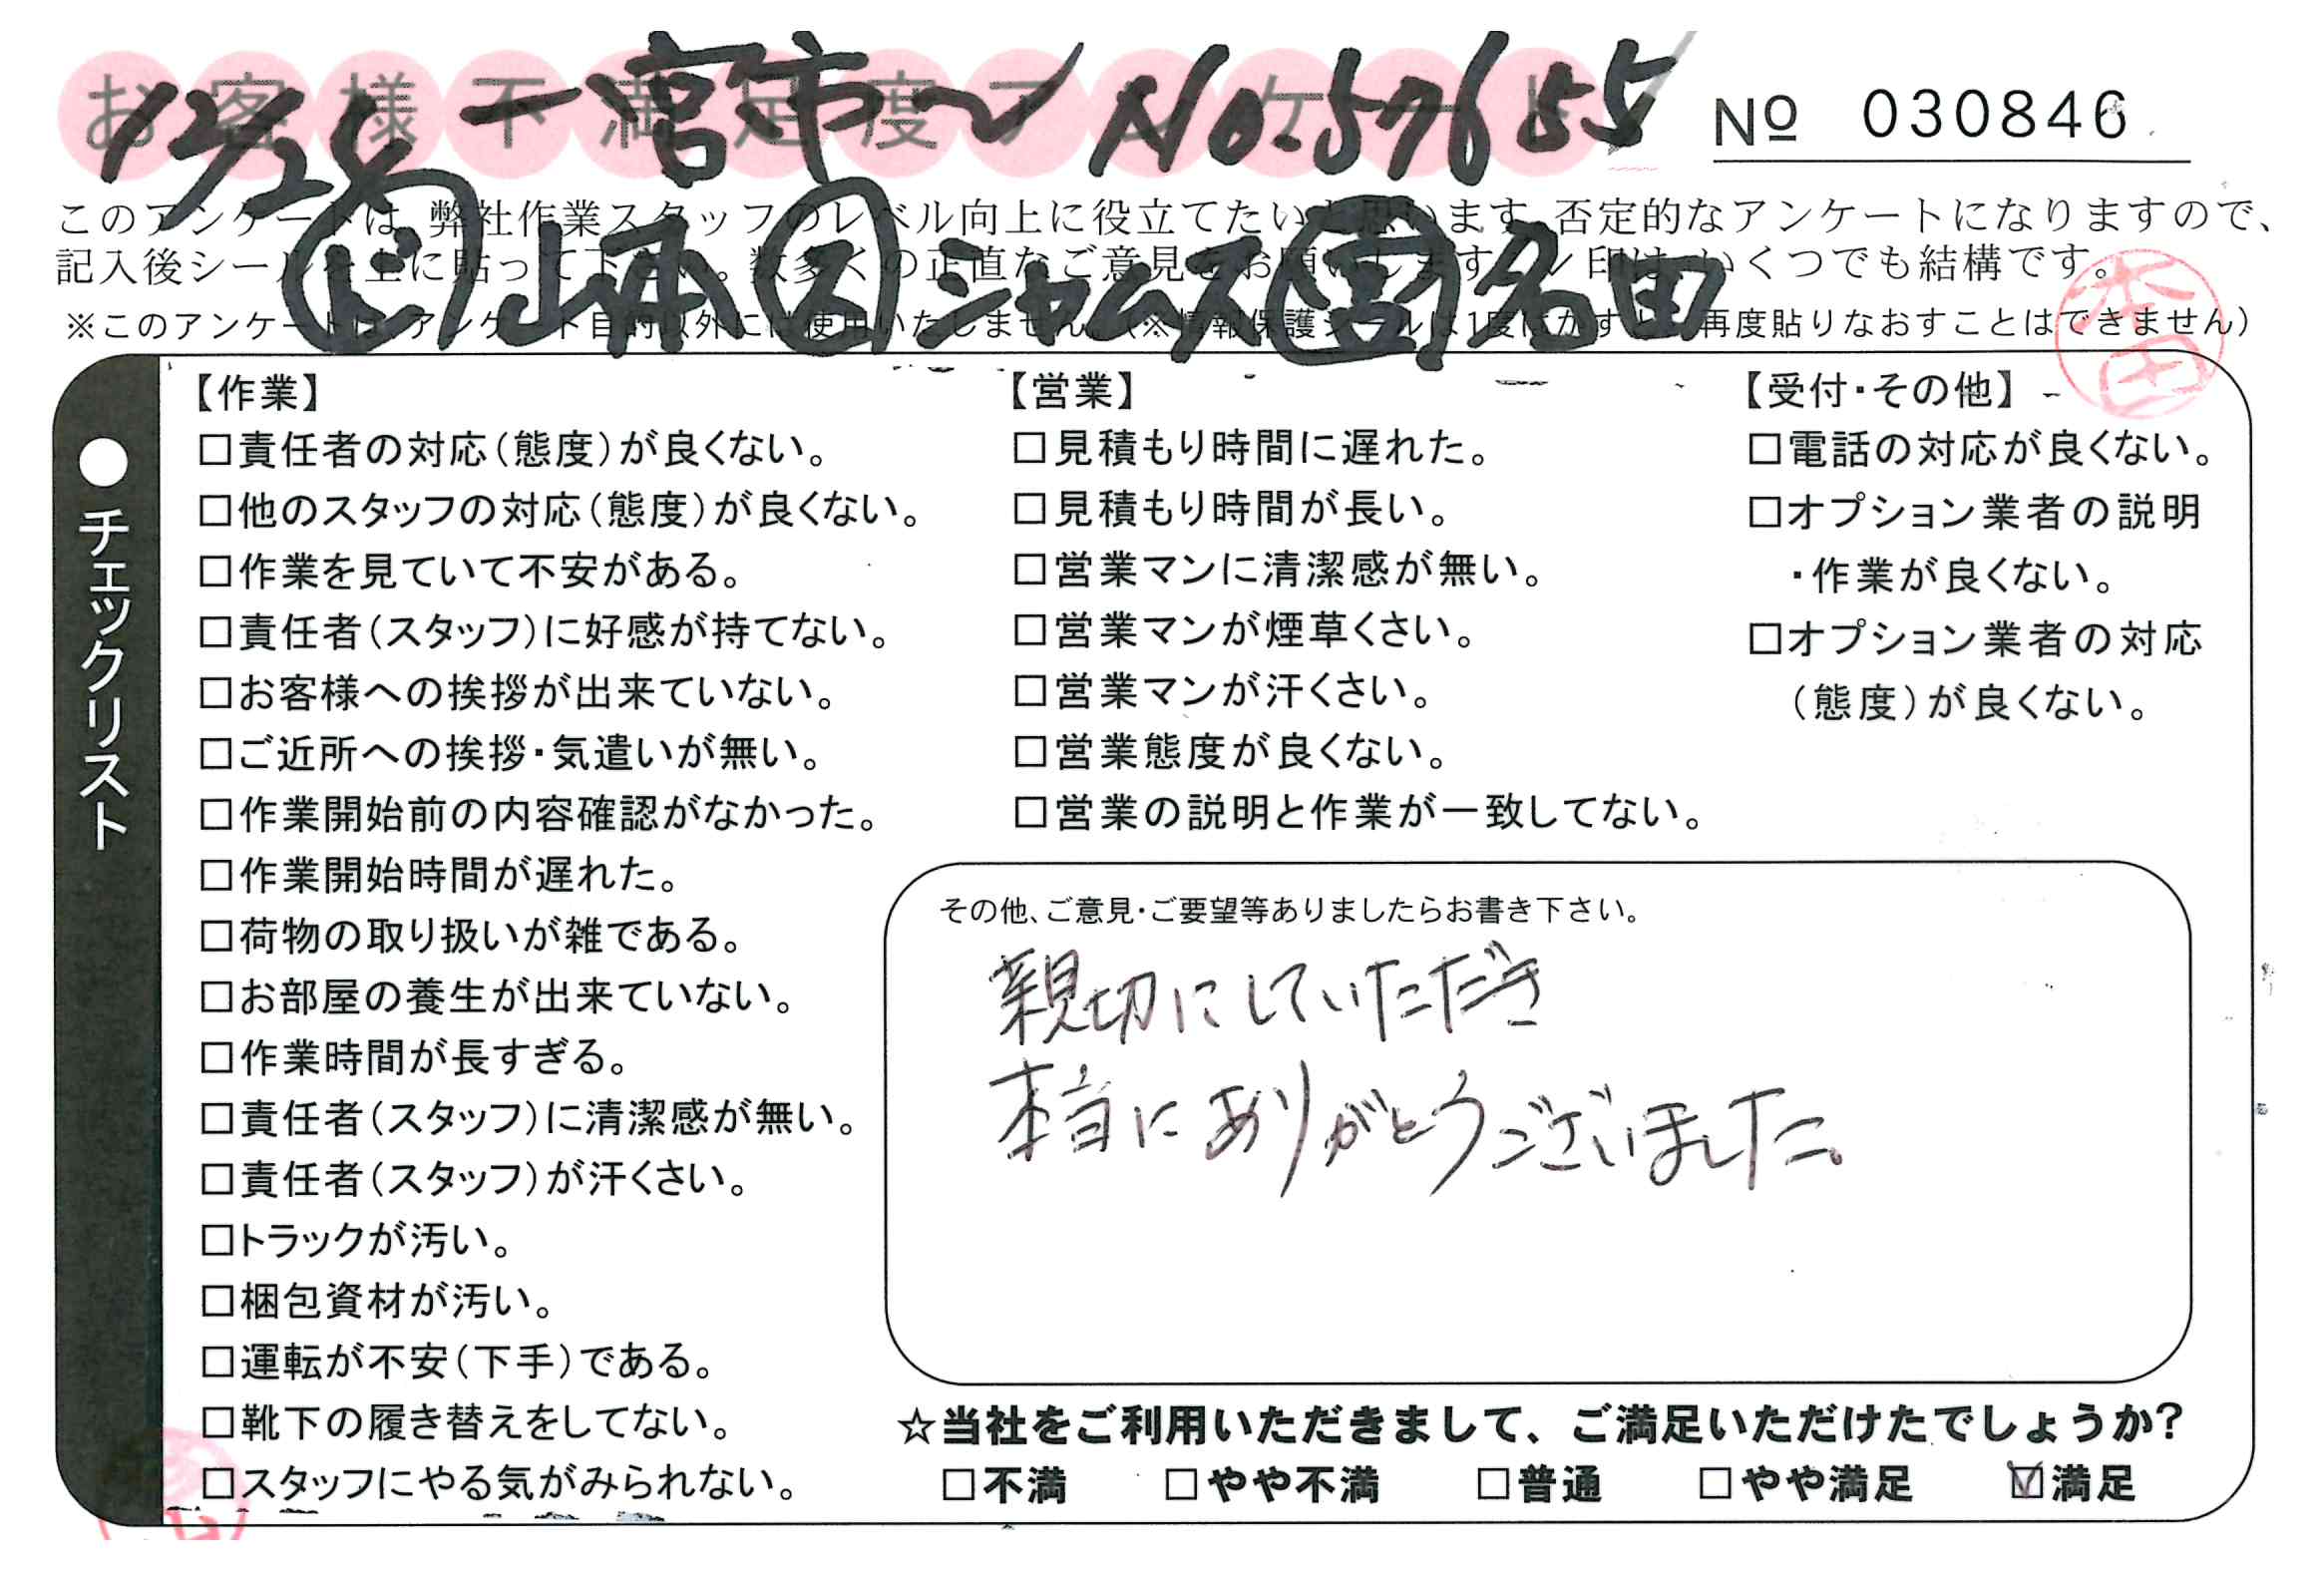 お客様不満足度アンケート
12/28 一宮市〜 No.57655
№ 030846
このアンケートは、弊社作業スタッフのレベル向上に役立てたいと思います。否定的なアンケートになりますので、
記入後シールを上に貼って下さい。数多くの正直なご意見をお願いします。レ印は、いくつでも結構です。
ド 山本 ス ジャムス 営 名田
※このアンケートは、アンケート目的以外には使用いたしません。(※情報保護シールは1度はがすと、再度貼りなおすことはできません)
本田
●チェックリスト
【作業】
□責任者の対応(態度)が良くない。
□他のスタッフの対応(態度)が良くない。
□作業を見ていて不安がある。
□責任者(スタッフ)に好感が持てない。
□お客様への挨拶が出来ていない。
□ご近所への挨拶・気遣いが無い。
□作業開始前の内容確認がなかった。
□作業開始時間が遅れた。
□荷物の取り扱いが雑である。
□お部屋の養生が出来ていない。
□作業時間が長すぎる。
□責任者(スタッフ)に清潔感が無い。
□責任者(スタッフ)が汗くさい。
□トラックが汚い。
□梱包資材が汚い。
□運転が不安(下手)である。
□靴下の履き替えをしてない。
□スタッフにやる気がみられない。
【営業】
□見積もり時間に遅れた。
□見積もり時間が長い。
□営業マンに清潔感が無い。
□営業マンが煙草くさい。
□営業マンが汗くさい。
□営業態度が良くない。
□営業の説明と作業が一致してない。
【受付・その他】
□電話の対応が良くない。
□オプション業者の説明
・作業が良くない。
□オプション業者の対応
(態度)が良くない。
その他、ご意見・ご要望等ありましたらお書き下さい。
親切にしていただき
本当にありがとうございました。
☆当社をご利用いただきまして、ご満足いただけたでしょうか?
□不満 □やや不満 □普通 □やや満足 ☑満足